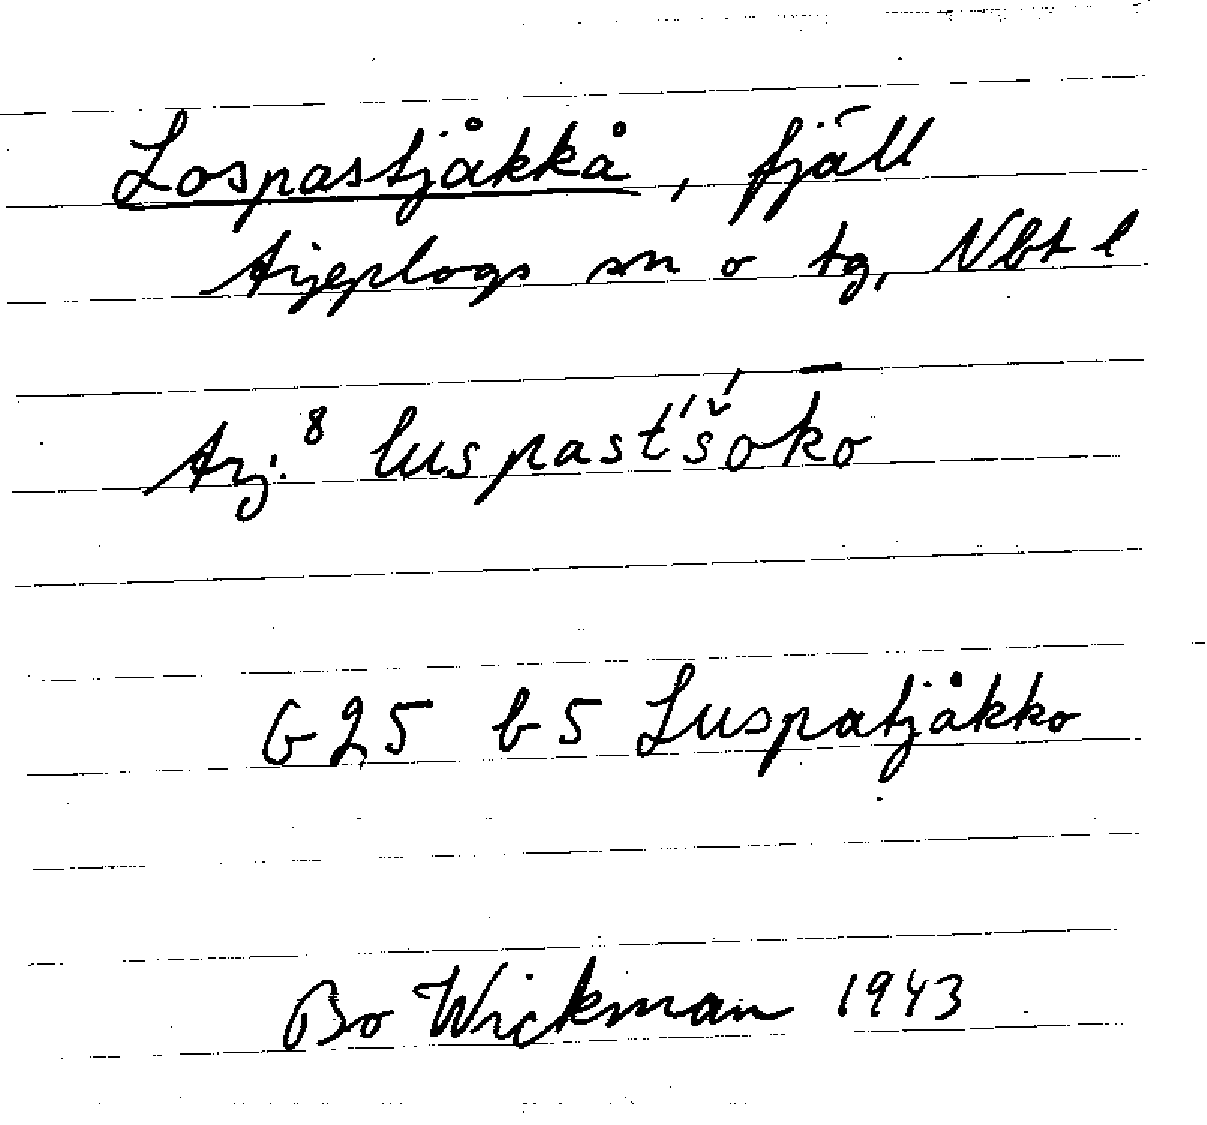 Lospastjåkkå, fjäll
Arjeplogs sn o tg, Nbt l
Arj. 8 luspast́'š́ok̄o
G25 b5 Luspatjåkko
Bo Wickman 1943